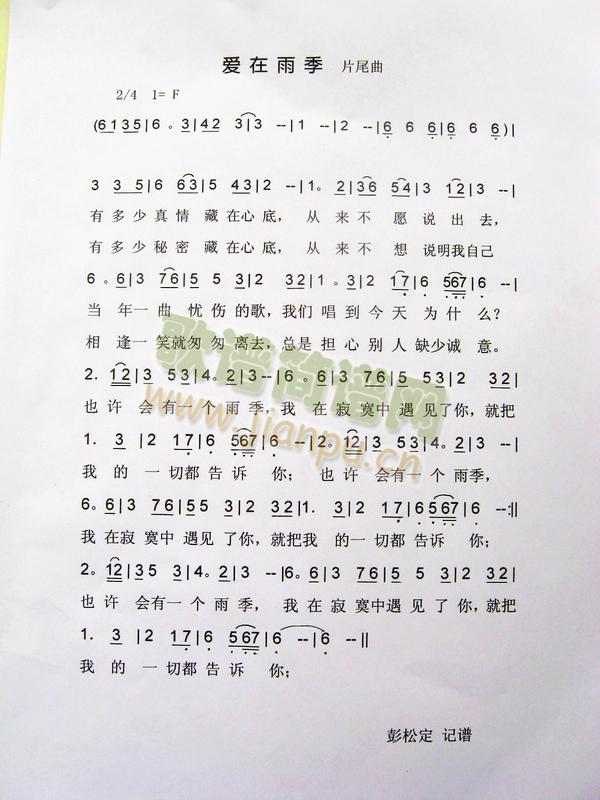 爱 在 雨 季 片尾曲
2/4 1= F
(6135|6 。 3|42 3|3 --|1 --|2 --|6 6 6|6 6 6)|
3 3 5|6 63|5 43|2 --|1。 2|36 54|3 12|3 --|
有 多 少 真 情 藏 在 心 底， 从 来 不 愿 说 出 去，
有 多 少 秘 密 藏 在 心 底， 从 来 不 想 说明我自己
6。 6|3 76|5 5 3|2 32|1。 3|2 17|6 567|6 --|
当 年一 曲 忧 伤 的歌，我们 唱 到 今 天 为 什 么？
相 逢一 笑就 匆 匆 离去，总是 担 心 别 人 缺少诚 意。
2。 12|3 53|4。 2|3 --|6。 6|3 76|5 53|2 32|
也 许 会 有 一 个 雨 季，我 在 寂 寞中 遇 见 了你，就把
1. 3 |2 17|6 567|6 --|2。 12|3 53|4。 2|3 --|
我 的 一 切都 告 诉 你； 也 许 会有一 个 雨季，
6。 6|3 76|55 3|2 32|1. 3|2 17|6 567|6 --:||
我 在寂 寞中 遇见 了 你，就把我 的一 切都 告诉 你；
2。 12|35 3|4。 2|3 --|6。 6|3 76|5 53|2 32|
也 许 会有一 个 雨 季， 我 在 寂 寞中遇见 了你，就把
1. 3 |2 17|6 567|6 --|6 --||
我 的 一 切都 告 诉 你；
彭松定 记谱
歌谱简谱网
www.jianpu.cn